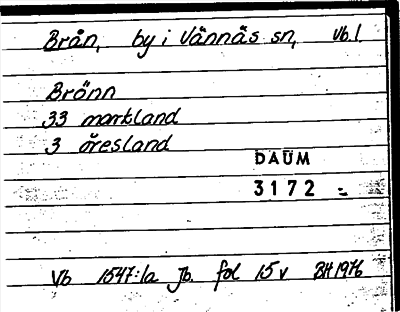 Brån, by i Vännäs sn, Vb.l.
Brönn
33 markland
3 öresland
DAUM
3172
Vb 1547:1a Jb. fol 15 v BH 1976